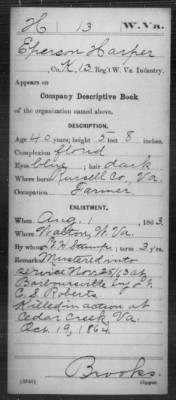 H 13 W. Va.
Eperson Harper
Co. K, 13 Reg't W. Va. Infantry.
Appears on
Company Descriptive Book
of the organization named above.
DESCRIPTION.
Age 40 years; height 5 feet 8 inches.
Complexion Florid
Eyes blue; hair dark
Where born Russell Co., Va.
Occupation Farmer
ENLISTMENT.
When Aug. 1, 1863.
Where Walton, W. Va.
By whom ; term 3 y'rs.
Remarks Mustered into
service Nov 25/63 at
Barboursville by Lt.
C. S. Roberts.
Killed in action at
Cedar Creek, Va.
Oct. 19, 1864.
Brooks
Copyist.